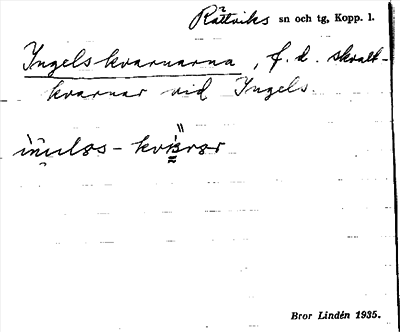 Rättviks sn och tg, Kopp. l.
Ingelskvarnarna, f.d. skvalt-
kvarnar vid Ingels.
Bror Lindén 1935.